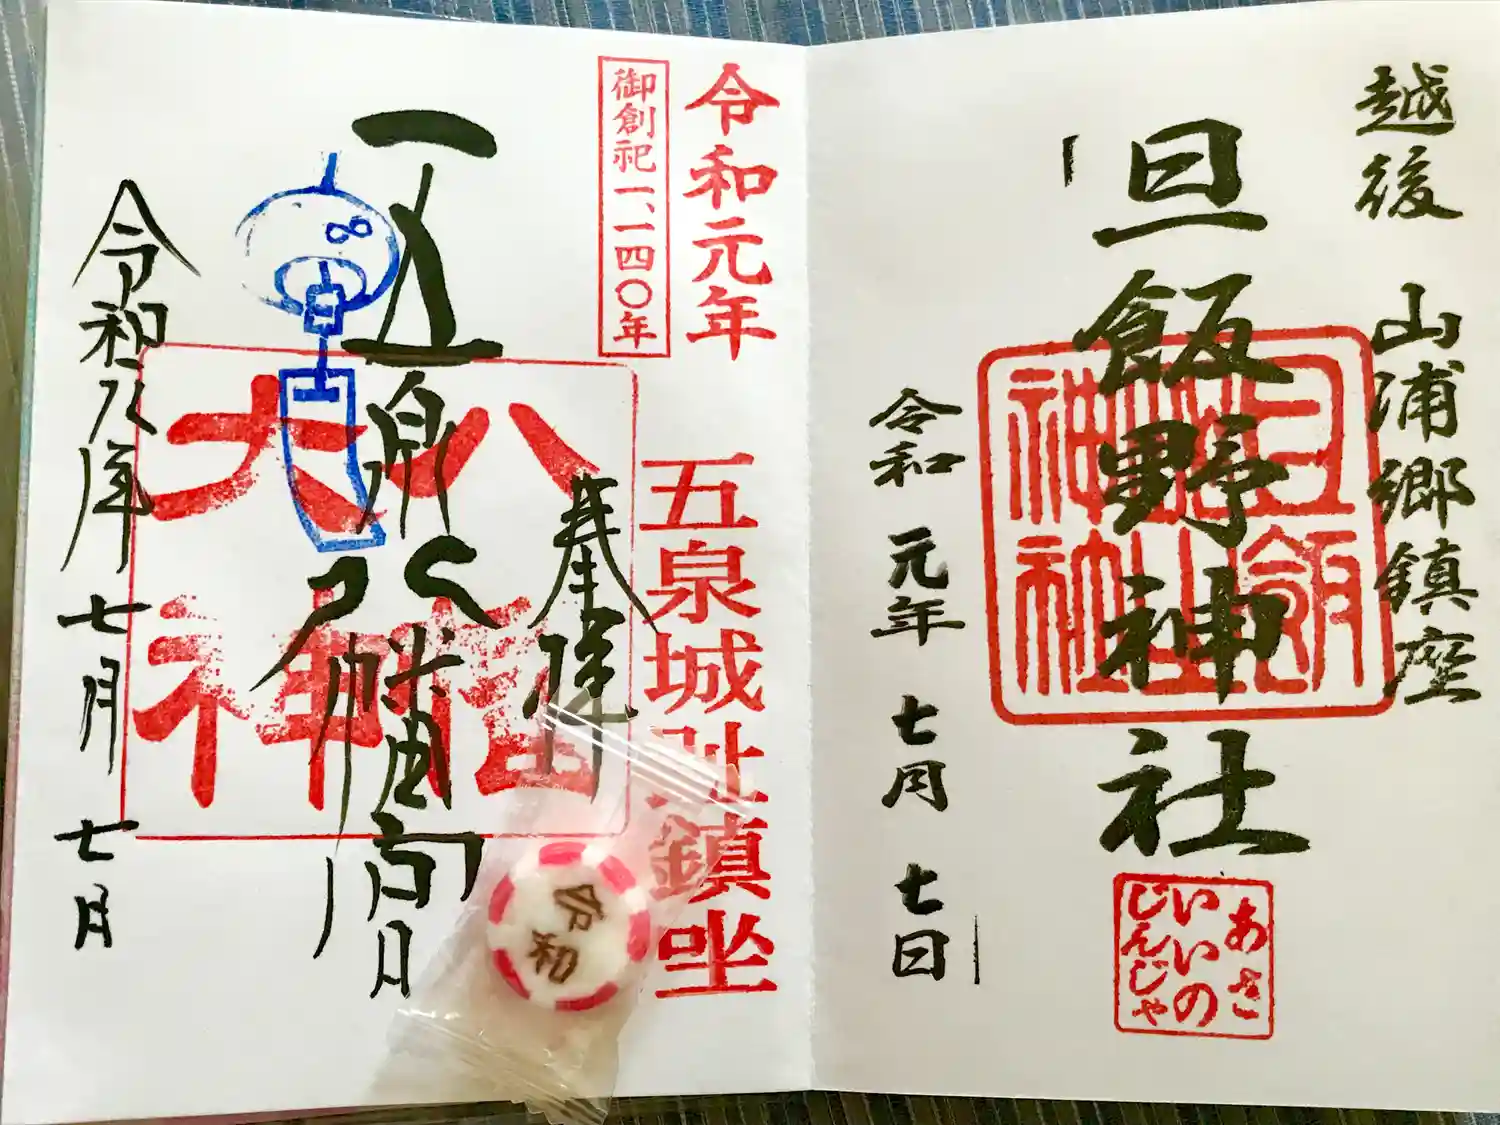 越後 山浦郷鎮座
旦飯野神社
旦飯
野神社
あさ
いいの
じんじゃ
令和 元年 七月 七日
令和元年
御創祀一、一四〇年
五泉城址鎮坐
奉拝
五泉八幡宮
八幡
大神
七月 七日
令和